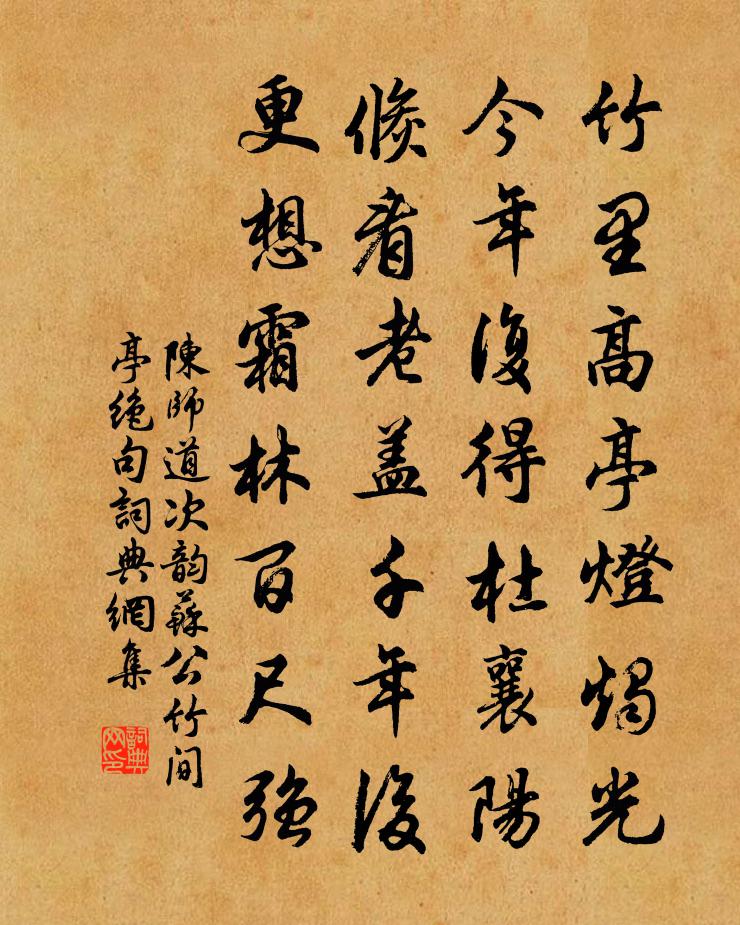 竹里高亭燈燭光
今年復得杜襄陽
倐看老蓋千年後
更想霜林百尺強
陳師道次韵蘇公竹间
亭絶句詞典網集
詞典网印